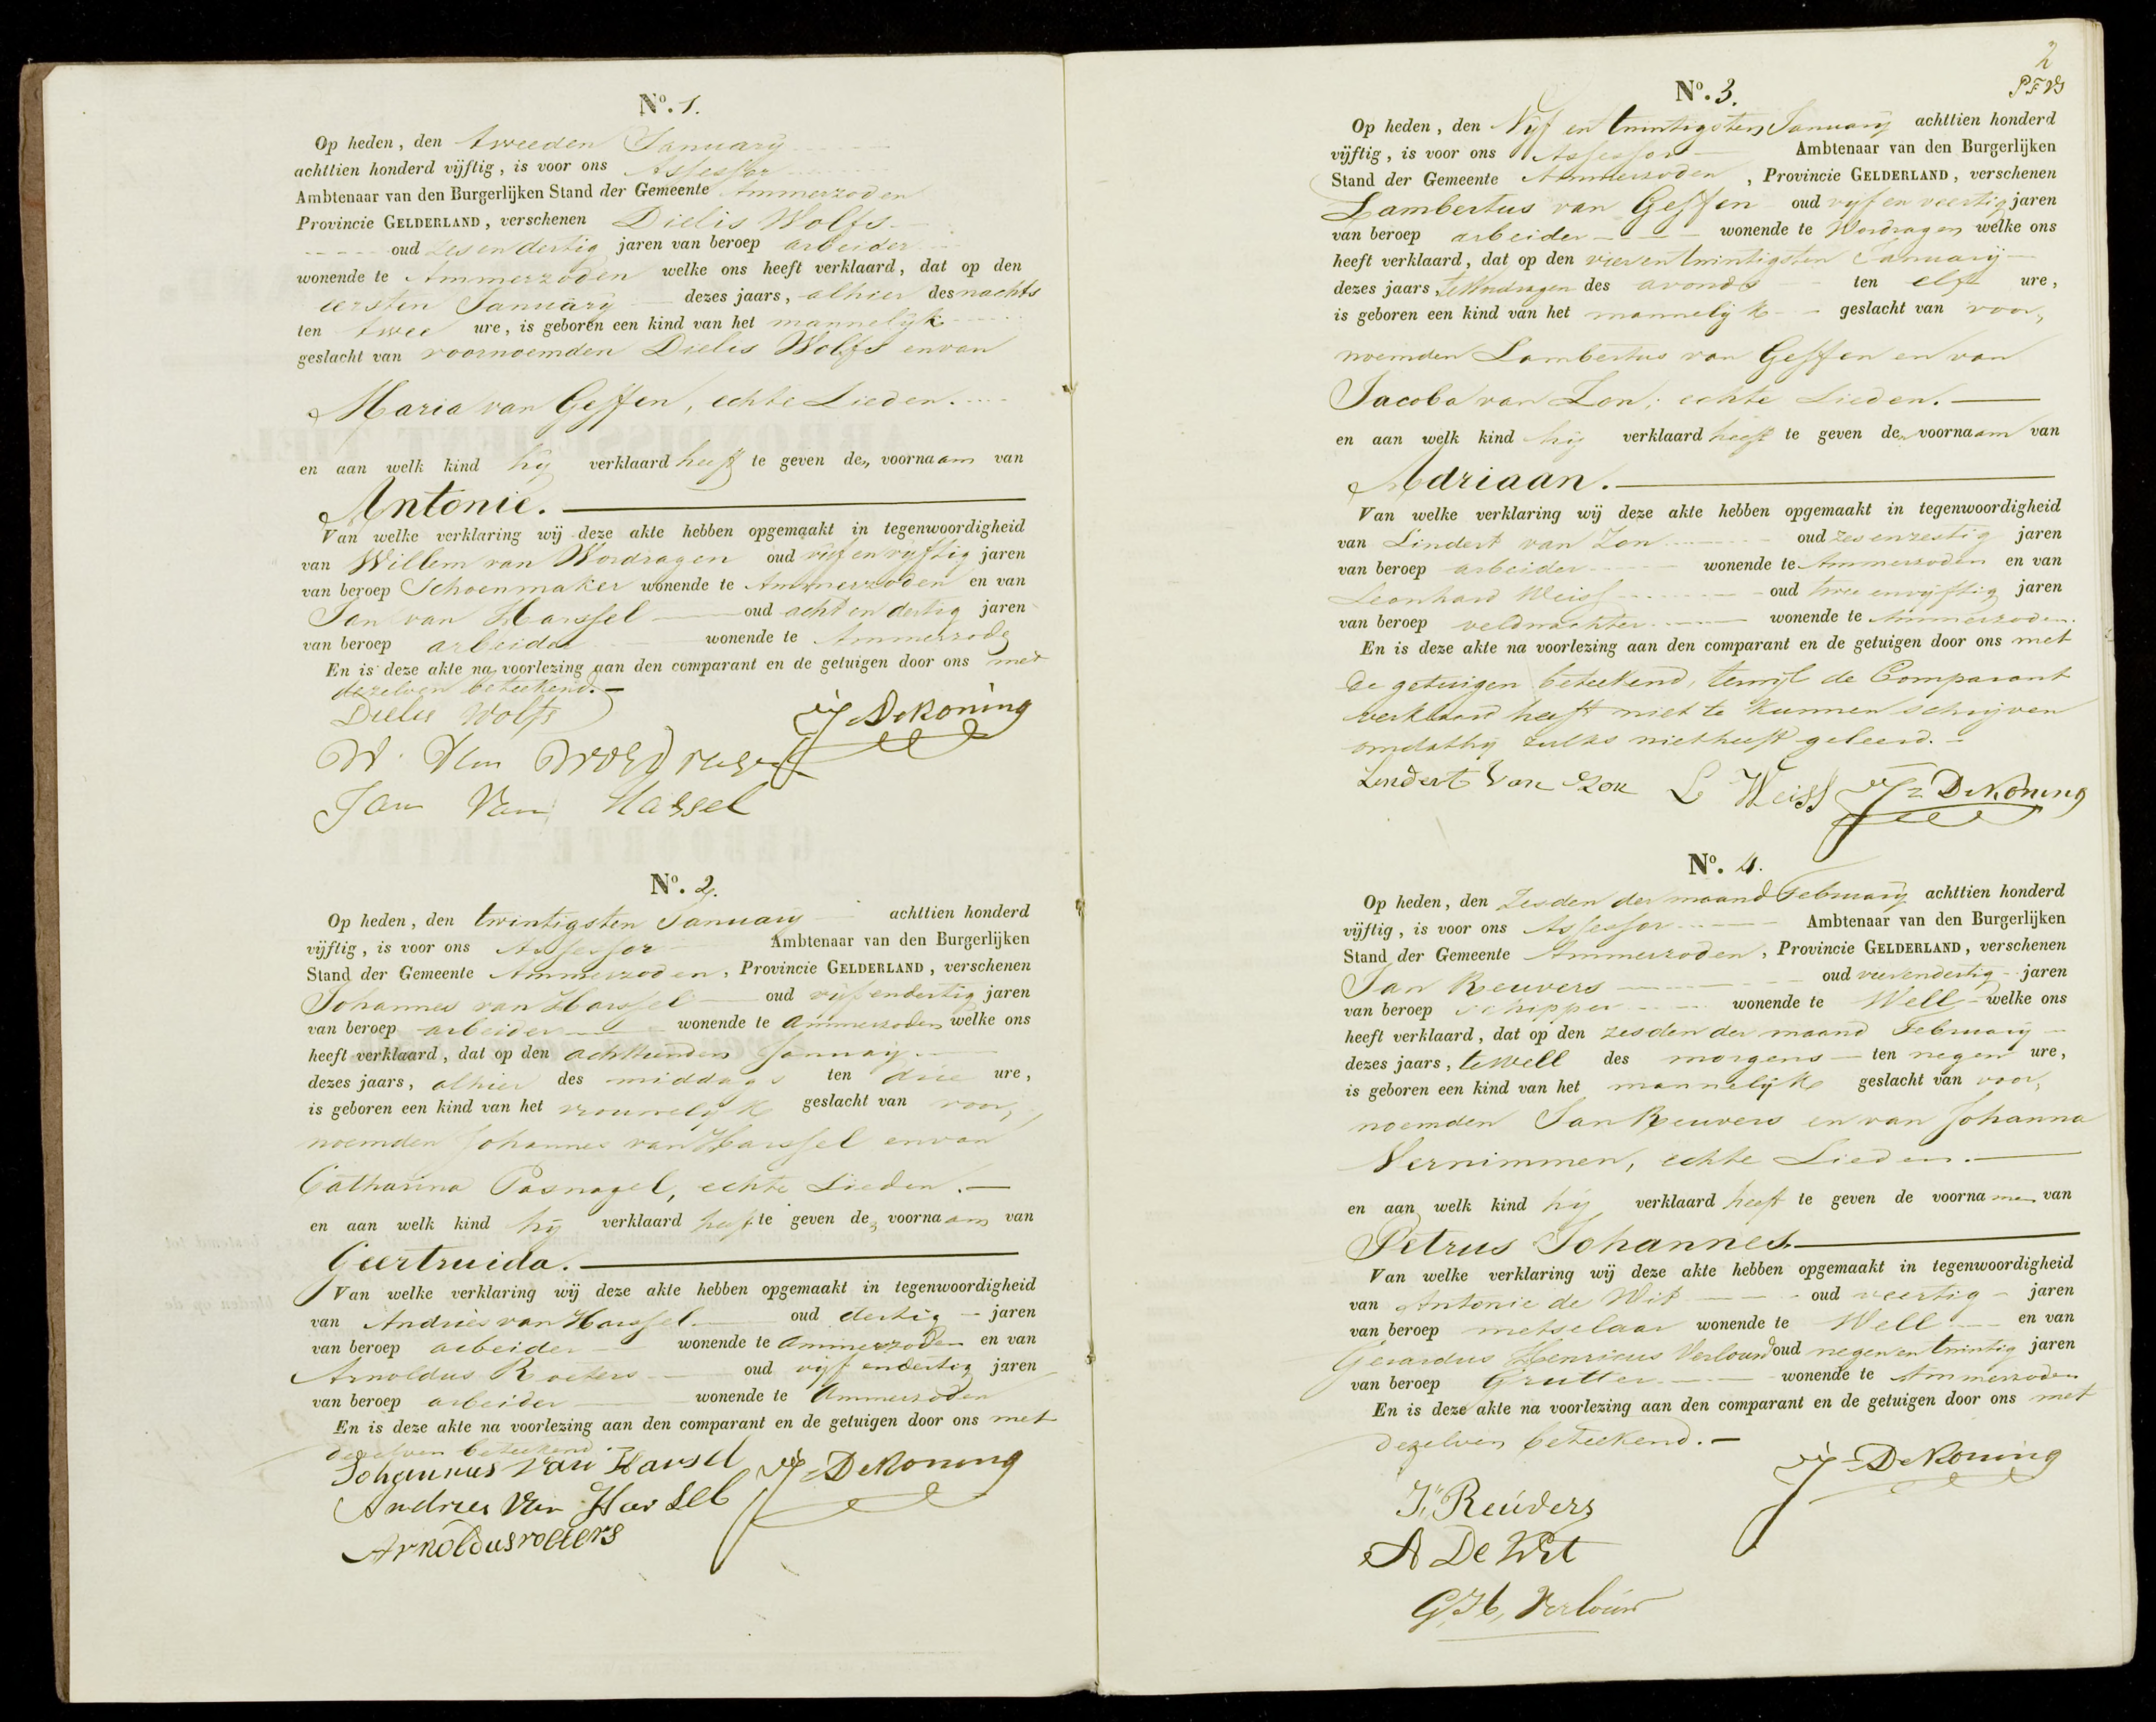 Nº. 1.
Op heden, den tweeden January
achttien honderd vijftig, is voor ons Assessor
Ambtenaar van den Burgerlijken Stand der Gemeente Ammerzoden
Provincie GELDERLAND, verschenen Dielis Wolfs
oud zes en dertig jaren van beroep arbeider
wonende te Ammerzoden welke ons heeft verklaard, dat op den
eersten January dezes jaars, alhier des nachts
ten twee ure, is geboren een kind van het mannelijk
geslacht van voornoemden Dielis Wolfs en van
Maria van Geffen, echte Lieden.
en aan welk kind hij verklaard heeft te geven den voornaam van
Antonie.
Van welke verklaring wij deze akte hebben opgemaakt in tegenwoordigheid
van Willem van Wordragen oud vijf en vijftig jaren
van beroep Schoenmaker wonende te Ammerzoden en van
Jan van Harssel oud acht en dertig jaren
van beroep arbeider wonende te Ammerzode
En is deze akte na voorlezing aan den comparant en de getuigen door ons met
dezelven beteekend.
Dielis Wolfs
J DeKoning
W. Van
Jan Van Hassel
Nº. 2.
Op heden, den twintigsten January achttien honderd
vijftig, is voor ons Assessor Ambtenaar van den Burgerlijken
Stand der Gemeente Ammerzoden, Provincie GELDERLAND, verschenen
Johannes van Harssel oud vijf en dertig jaren
van beroep arbeider wonende te Ammerzoden welke ons
heeft verklaard, dat op den achttienden January
dezes jaars, alhier des middags ten drie ure,
is geboren een kind van het vrouwelijk geslacht van voor,
noemden Johannes van Harssel en van
Catharina Pasnagel, echte Lieden.
en aan welk kind hij verklaard heeft te geven den voornaam van
Geertruida.
Van welke verklaring wij deze akte hebben opgemaakt in tegenwoordigheid
van Andries van Harssel oud dertig jaren
van beroep arbeider wonende te Ammerzoden en van
Arnoldus Roeters oud vijf en dertig jaren
van beroep arbeider wonende te Ammerzoden
En is deze akte na voorlezing aan den comparant en de getuigen door ons met
dezelven beteekend.
Johannes Van Harsel J DeKoning
Andries Van Harsel
Arnoldus roeters
2
PFVS
Nº. 3.
Op heden, den Vijf en twintigsten January achttien honderd
vijftig, is voor ons Assessor Ambtenaar van den Burgerlijken
Stand der Gemeente Ammerzoden, Provincie GELDERLAND, verschenen
Lambertus van Geffen oud vijf en veertig jaren
van beroep arbeider wonende te Wordragen welke ons
heeft verklaard, dat op den vier en twintigsten January
dezes jaars, te Wordragen des avonds ten elf ure,
is geboren een kind van het mannelijk geslacht van voor,
noemden Lambertus van Geffen en van
Jacoba van Zon, echte Lieden.
en aan welk kind hij verklaard heeft te geven den voornaam van
Adriaan.
Van welke verklaring wij deze akte hebben opgemaakt in tegenwoordigheid
van Lindert van Zon oud zes en zestig jaren
van beroep arbeider wonende te Ammerzoden en van
Leonhard Weiss oud twee en vijftig jaren
van beroep veldwachter wonende te Ammerzoden.
En is deze akte na voorlezing aan den comparant en de getuigen door ons met
de getuigen beteekend, terwijl de Comparant
verklaard heeft niet te kunnen schrijven
omdat hij zulks niet heeft geleerd.
Lendert Van Zon L Weiss J DeKoning
Nº. 4.
Op heden, den Zesden der maand February achttien honderd
vijftig, is voor ons Assessor Ambtenaar van den Burgerlijken
Stand der Gemeente Ammerzoden, Provincie GELDERLAND, verschenen
Jan Reuvers oud vier en dertig jaren
van beroep schipper wonende te Well welke ons
heeft verklaard, dat op den zesden der maand February
dezes jaars, te Well des morgens ten negen ure,
is geboren een kind van het mannelijk geslacht van voor,
noemden Jan Reuvers en van Johanna
Vernimmen, echte Lieden.
en aan welk kind hij verklaard heeft te geven de voornamen van
Petrus Johannes.
Van welke verklaring wij deze akte hebben opgemaakt in tegenwoordigheid
van Antonie de Wit oud veertig jaren
van beroep metselaar wonende te Well en van
Gerardus Henricus Verlouw oud negen en twintig jaren
van beroep Grutter wonende te Ammerzoden
En is deze akte na voorlezing aan den comparant en de getuigen door ons met
dezelven beteekend.
J DeKoning
J. Reuvers
A De Wit
G, H, Verlouw